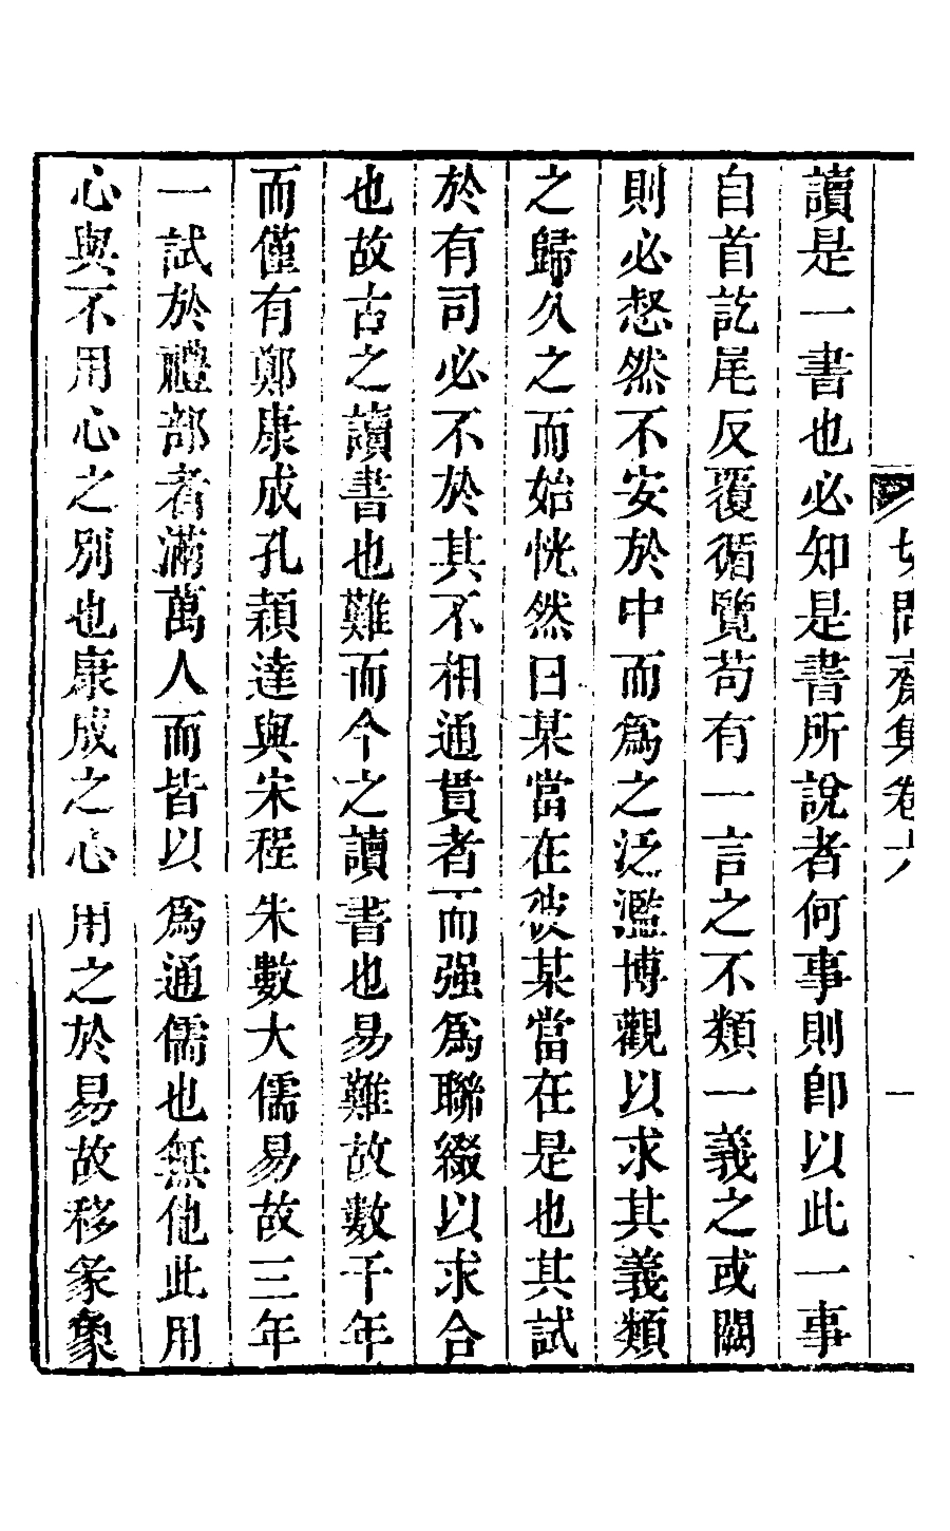 切問齋集卷六
一
讀是一書也必知是書所說者何事則卽以此一事
自首訖尾反覆循覽苟有一言之不類一義之或闕
則必惄然不安於中而爲之泛濫博觀以求其義類
之歸久之而始恍然曰某當在彼某當在是也其試
於有司必不於其不相通貫者而强爲聯綴以求合
也故古之讀書也難而今之讀書也易難故數千年
而僅有鄭康成孔穎達與宋程朱數大儒易故三年
一試於禮部者滿萬人而皆以爲通儒也無他此用
心與不用心之別也康成之心用之於易故移彖象